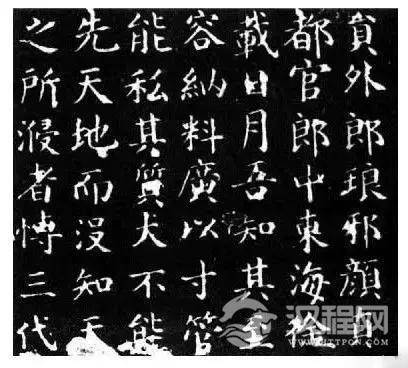 貟外郎琅邪顏貞
都官郎中東海徐
載日月吾知其至
容納料廣以寸管
能私其質犬不能
先天地而沒知天
之所浸者博三代
汉程网
HTTPCN.COM